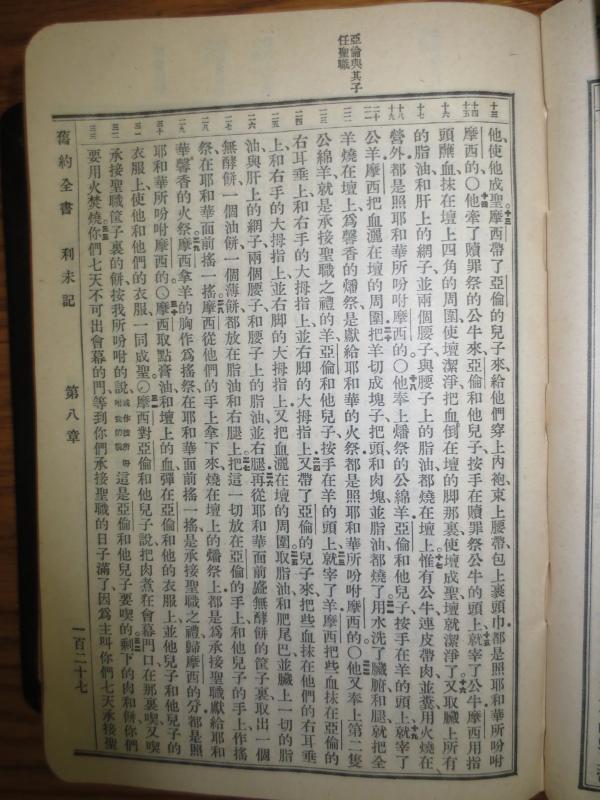 亞倫與其子
任聖職
十三 十四 十五 十六 十七 十八 十九 二十 二一 二二 二三 二四 二五 二六 二七 二八 二九 三十 三一 三二 三三
他使他成聖、摩西帶了亞倫的兒子來、給他們穿上內袍、束上腰帶、包上裹頭巾、都是照耶和華所吩咐
摩西的。〇他牽了贖罪祭的公牛來、亞倫和他兒子按手在贖罪祭公牛的頭上、就宰了公牛、摩西用指
頭蘸血、抹在壇上四角的周圍、使壇潔淨、把血倒在壇的脚那裏、使壇成聖、壇就潔淨了、又取臟上所有
的脂油、和肝上的網子、並兩個腰子、與腰子上的脂油、都燒在壇上、惟有公牛、連皮帶肉並糞、用火燒在
營外、都是照耶和華所吩咐摩西的。〇他奉上燔祭的公綿羊、亞倫和他兒子按手在羊的頭上、就宰了
公羊、摩西把血灑在壇的周圍、把羊切成塊子、把頭和肉塊並脂油都燒了、用水洗了臟腑和腿、就把全
羊燒在壇上、爲馨香的燔祭、是獻給耶和華的火祭、都是照耶和華所吩咐摩西的。〇他又奉上第二隻
公綿羊、就是承接聖職之禮的羊、亞倫和他兒子按手在羊的頭上、就宰了羊、摩西把些血抹在亞倫的
右耳垂上、和右手的大拇指上、並右脚的大拇指上、又帶了亞倫的兒子來、把些血抹在他們的右耳垂
上、和右手的大拇指上、並右脚的大拇指上、又把血灑在壇的周圍、取脂油、和肥尾巴、並臟上一切的脂
油、與肝上的網子、兩個腰子、和腰子上的脂油、並右腿、再從耶和華面前盛無酵餅的筐子裏、取出一個
無酵餅、一個油餅、一個薄餅、都放在脂油和右腿上、把這一切放在亞倫的手上、和他兒子的手上、作搖
祭、在耶和華面前搖一搖、摩西從他們的手上拿下來、燒在壇上的燔祭上、都是爲承接聖職獻給耶和
華馨香的火祭、摩西拿羊的胸作爲搖祭、在耶和華面前搖一搖、是承接聖職之禮、歸摩西的分、都是照
耶和華所吩咐摩西的。〇摩西取點膏油和壇上的血、彈在亞倫和他的衣服上、並他兒子和他兒子的
衣服上、使他和他們的衣服、一同成聖。〇摩西對亞倫和他兒子說、把肉煮在會幕門口、在那裏喫、又喫
承接聖職筐子裏的餅、按我所吩咐的說、這是亞倫和他兒子要喫的、剩下的肉和餅、你們
要用火焚燒、你們七天不可出會幕的門、等到你們承接聖職的日子滿了、因爲主叫你們七天承接聖
舊約全書 利未記 第八章 一百二十七